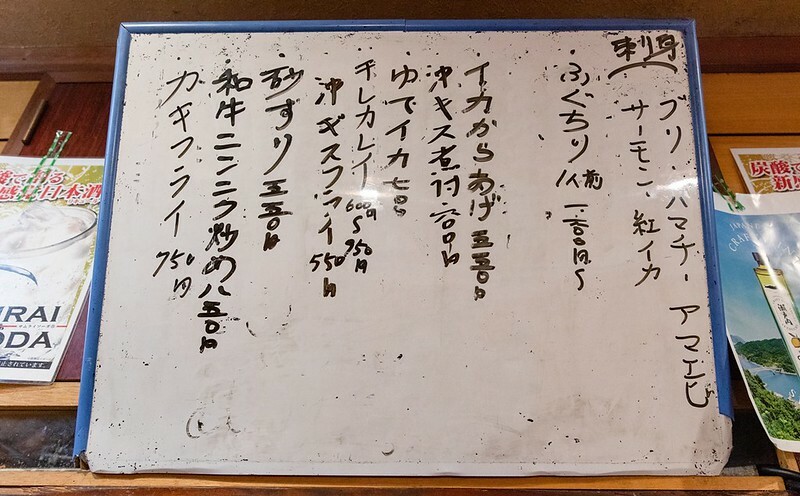 刺身
ブリ・ハマチ・アマエビ
サーモン・紅イカ
・ふぐちり 一人前 一、二〇〇円〜
・イカからあげ 五五〇円
沖キス煮付 六〇〇円
ゆでイカ 七〇〇
・チレカレイ 600円〜950円
沖ギスフライ 550円
・砂すり 五五〇円
・和牛ニンニク炒め 八五〇円
・カキフライ 750円
炭酸で
日本酒
RAI
ODA
炭酸で
新感